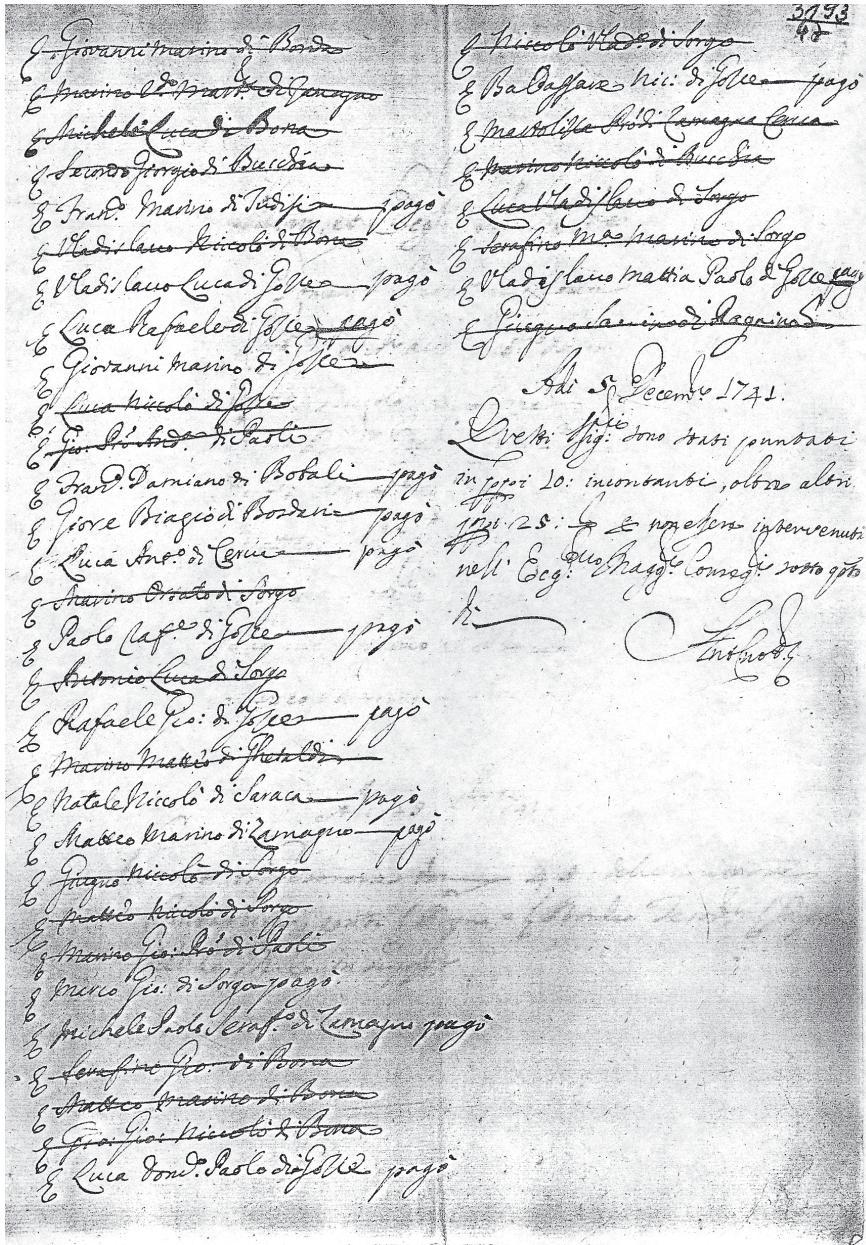 Giovanni Marino di Bona
Marino di Zamagno
Michele Luca di Bona
Secondo Giorgio di Bucchia
Franc.º Marino di Tudisi pagò
Vladislauo Niccolò di Bona
Vladislauo Luca di Gozze pagò
Luca Rafaele di Gozze pagò
Giovanni Marino di Gozze
Luca Niccolò di Gozze
Gio: di Paoli
Franc.º Damiano di Bobali pagò
Giore Biagio di Bordari pagò
Luca Ant.º di Cerua pagò
Marino Orsato di Sorgo
Paolo Raf.e di Gozze pagò
Antonio Luca di Sorgo
Rafaele Gio: di Gozze pagò
Marino Matteo di Ghetaldi
Natale Niccolò di Saraca pagò
Matteo Marino di Zamagno pagò
Giugno Niccolò di Sorgo
Matteo Niccolò di Sorgo
Marino Gio: di Paoli
Marco Gio: di Sorgo pagò
Michele Paolo Seraf.º di Zamagno pagò
Serafino Gio: di Bona
Matteo Marino di Bona
Gio: Gio: Niccolò di Bona
Luca Paolo di Gozze pagò
3193
Niccolò Vlad.º di Sorgo
Baldassare Nic: di Gozze pagò
di Zamagna Cerua
Marino Niccolò di Bucchia
Luca Vladislauo di Sorgo
Serafino M.a Marino di Sorgo
Vladislauo Mattia Paolo di Gozze pagò
Giugno di Ragnina
Adi 5 Decemb.e 1741.
Questi Sig:ri sono stati puntati
in 10: incontanti, oltre altri
25: non essere intervenuti
nell' Ecc.mo Magg.e Conseg.º sotto q.to
di